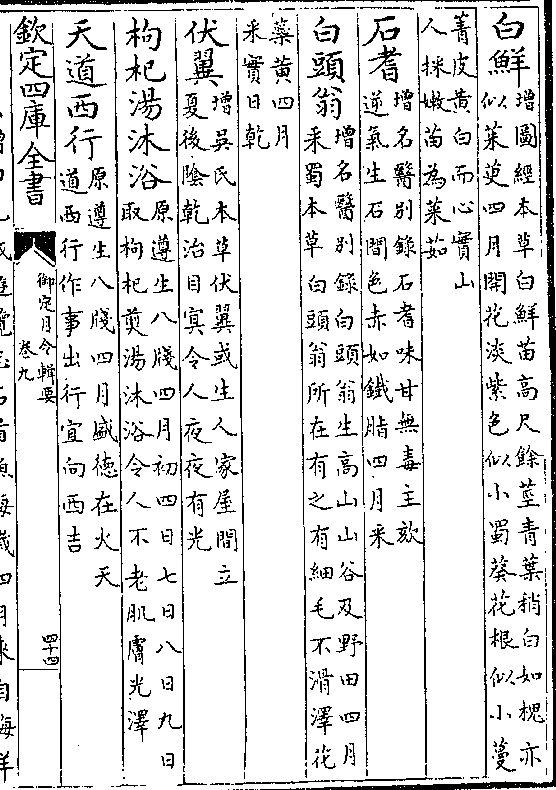 白鮮增圖經本草白鮮苗高尺餘莖青葉稍白如槐亦
似茱萸四月開花淡紫色似小蜀葵花根似小蔓
菁皮黄白而心實山
人採嫩苗為菜茹
石耆增名醫别錄石耆味甘無毒主欬
逆氣生石間色赤如鐵脂四月采
白頭翁增名醫别錄白頭翁生高山山谷及野田四月
采蜀本草白頭翁所在有之有細毛不滑澤花
蘂黄四月
采實日乾
伏翼增吳氏本草伏翼或生人家屋間立
夏後陰乾治目㝠令人夜夜有光
枸杞湯沐浴原遵生八牋四月初四日七日八日九日
取枸杞煎湯沐浴令人不老肌膚光澤
天道西行原遵生八牋四月盛德在火天
道西行作事出行宜向西吉
欽定四庫全書
御定月令輯要
卷九
四十四
四月來自海洋